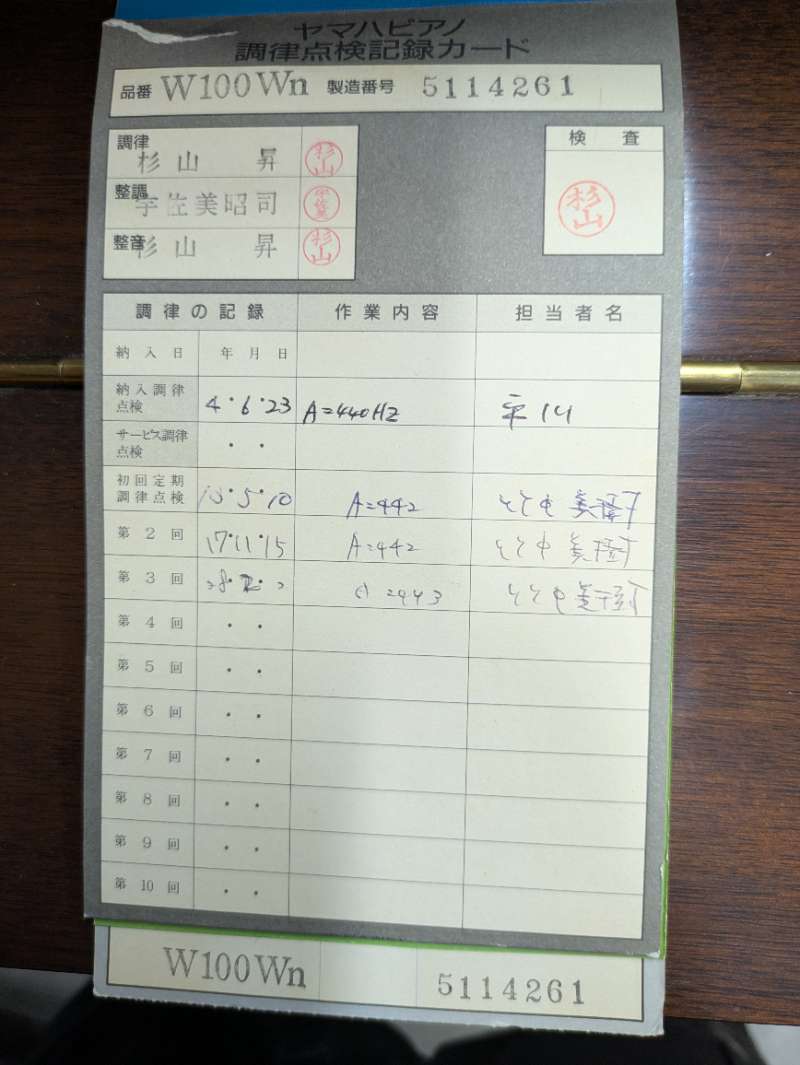 ヤマハピアノ
調律点検記録カード
品番 W100Wn 製造番号 5114261
調律 杉山 昇 杉山
整調 宇佐美昭司 宇佐美
整音 杉山 昇 杉山
検査
杉山
調律の記録 作業内容 担当者名
納入日 年 月 日
納入調律点検 4・6・23 A=440HZ 平川
サービス調律点検 ・ ・
初回定期調律点検 13・5・10 A=442
第2回 17・11・15 A=442
第3回
第4回 ・ ・
第5回 ・ ・
第6回 ・ ・
第7回 ・ ・
第8回 ・ ・
第9回 ・ ・
第10回 ・ ・
W100Wn 5114261